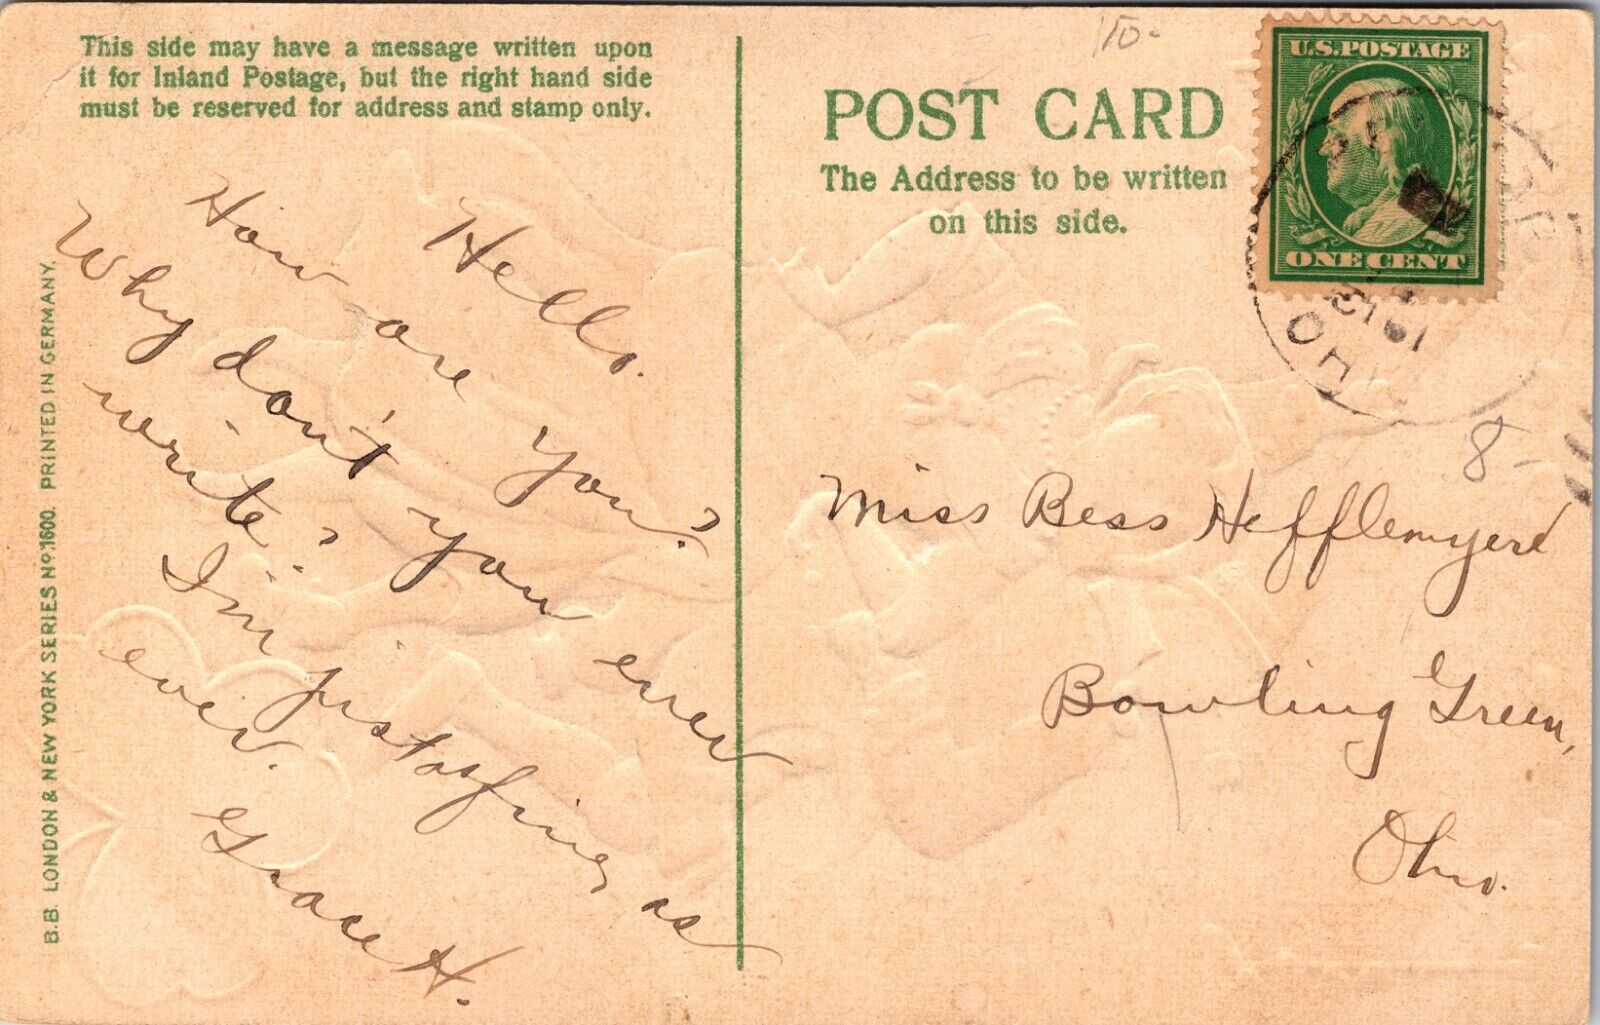 This side may have a message written upon
it for Inland Postage, but the right hand side
must be reserved for address and stamp only.
Hello.
How are you?
Why don't you ever
write?
I'm just as fine as
ever.
Grace H.
B.B. LONDON & NEW YORK SERIES No. 1600. PRINTED IN GERMANY.
10-
POST CARD
The Address to be written
on this side.
U.S. POSTAGE
ONE CENT
1913
OHIO
8-
Miss Bess Hefflemyerd
Bowling Green,
Ohio.